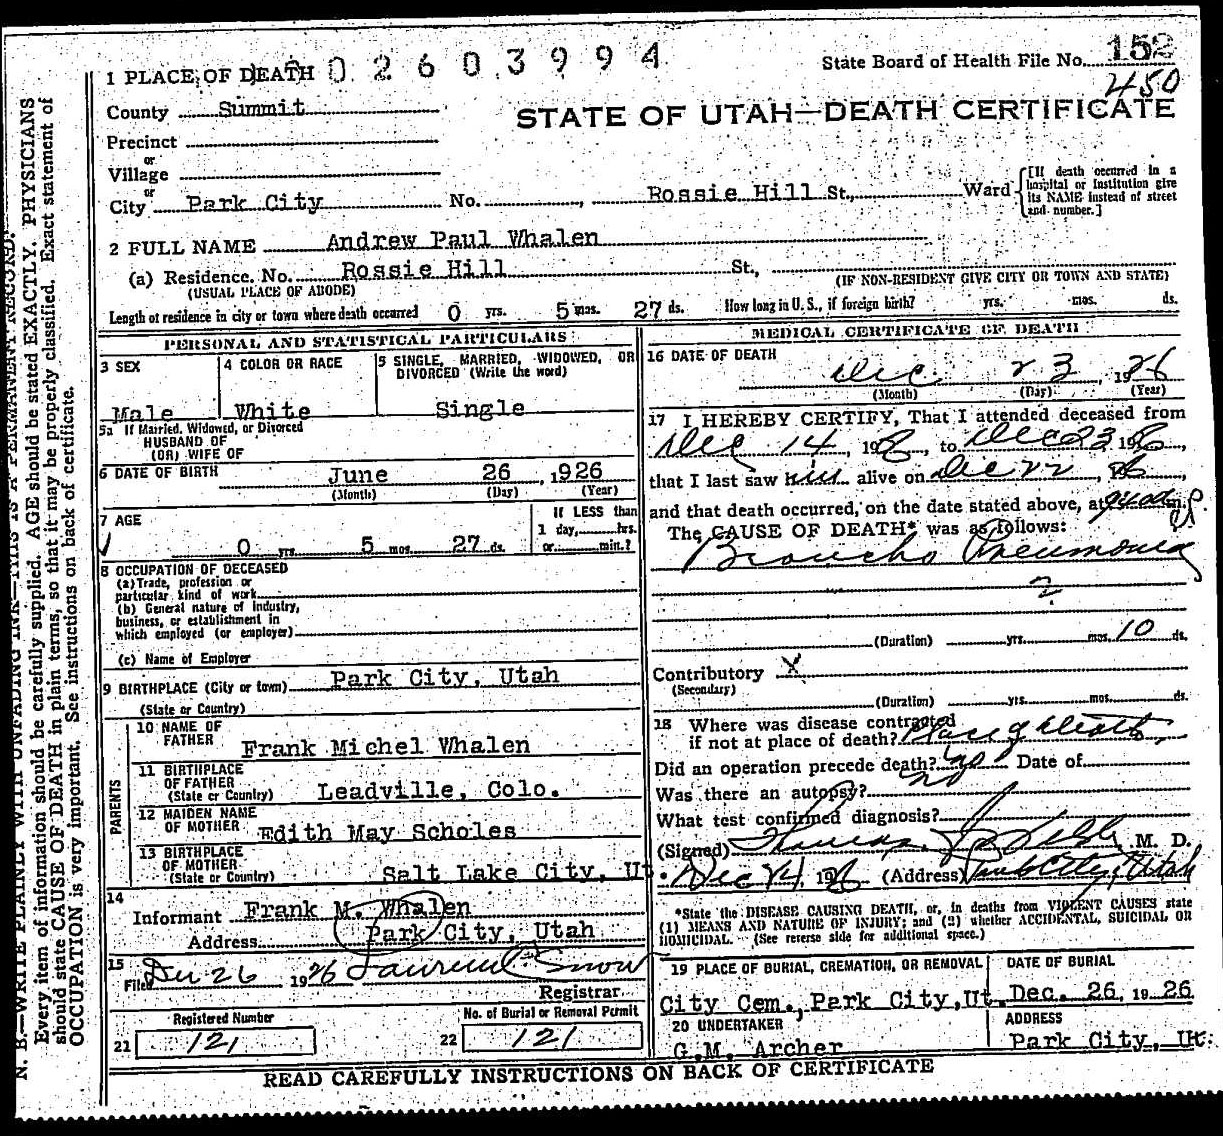 1 PLACE OF DEATH 02603994
State Board of Health File No. 152
450
County Summit
STATE OF UTAH—DEATH CERTIFICATE
Precinct
or
Village
or
City Park City No. , Rossie Hill St., Ward
[If death occurred in a hospital or institution give its NAME instead of street and number.]
2 FULL NAME Andrew Paul Whalen
(a) Residence. No. Rossie Hill St.,
(USUAL PLACE OF ABODE) (IF NON-RESIDENT GIVE CITY OR TOWN AND STATE)
Length of residence in city or town where death occurred 0 yrs. 5 mos. 27 ds. How long in U. S., if foreign birth? yrs. mos. ds.
PERSONAL AND STATISTICAL PARTICULARS
3 SEX
Male
4 COLOR OR RACE
White
5 SINGLE, MARRIED, WIDOWED, OR DIVORCED (Write the word)
Single
5a If Married, Widowed, or Divorced
HUSBAND OF
(OR) WIFE OF
6 DATE OF BIRTH June 26 , 1926
(Month) (Day) (Year)
7 AGE
0 yrs. 5 mos. 27 ds.
If LESS than
1 day, hrs.
or min.?
8 OCCUPATION OF DECEASED
(a) Trade, profession or
particular kind of work
(b) General nature of industry,
business, or establishment in
which employed (or employer)
(c) Name of Employer
9 BIRTHPLACE (City or town) Park City, Utah
(State or Country)
PARENTS
10 NAME OF
FATHER Frank Michel Whalen
11 BIRTHPLACE
OF FATHER
(State or Country) Leadville, Colo.
12 MAIDEN NAME
OF MOTHER Edith May Scholes
13 BIRTHPLACE
OF MOTHER
(State or Country) Salt Lake City, Ut
14
Informant Frank M. Whalen
Address Park City, Utah
15
Filed Dec 26 1926 Laurence Snow
Registrar
Registered Number
21 121
No. of Burial or Removal Permit
22 121
MEDICAL CERTIFICATE OF DEATH
16 DATE OF DEATH
Dec 23 , 1926
(Month) (Day) (Year)
17 I HEREBY CERTIFY, That I attended deceased from
Dec 14, 1926, to Dec 23 1926,
that I last saw him alive on Dec 22, 26
and that death occurred, on the date stated above, at m.
The CAUSE OF DEATH* was as follows:
Broncho Pneumonia
(Duration) yrs. mos. 10 ds.
Contributory X
(Secondary)
(Duration) yrs. mos. ds.
18 Where was disease contracted
if not at place of death? Place of death,
Did an operation precede death? no Date of
Was there an autopsy? no
What test confirmed diagnosis?
(Signed) Thomas M. D.
Dec 24, 1926 (Address) Park City, Utah
*State the DISEASE CAUSING DEATH, or, in deaths from VIOLENT CAUSES state
(1) MEANS AND NATURE OF INJURY; and (2) whether ACCIDENTAL, SUICIDAL OR
HOMICIDAL. (See reverse side for additional space.)
19 PLACE OF BURIAL, CREMATION, OR REMOVAL
City Cem., Park City, Ut.
DATE OF BURIAL
Dec. 26, 1926
20 UNDERTAKER
G.M. Archer
ADDRESS
Park City, Ut.
READ CAREFULLY INSTRUCTIONS ON BACK OF CERTIFICATE
N. B.—WRITE PLAINLY WITH UNFADING INK—THIS IS A PERMANENT RECORD.
Every item of information should be carefully supplied. AGE should be stated EXACTLY. PHYSICIANS
should state CAUSE OF DEATH in plain terms, so that it may be properly classified. Exact statement of
OCCUPATION is very important. See instructions on back of certificate.